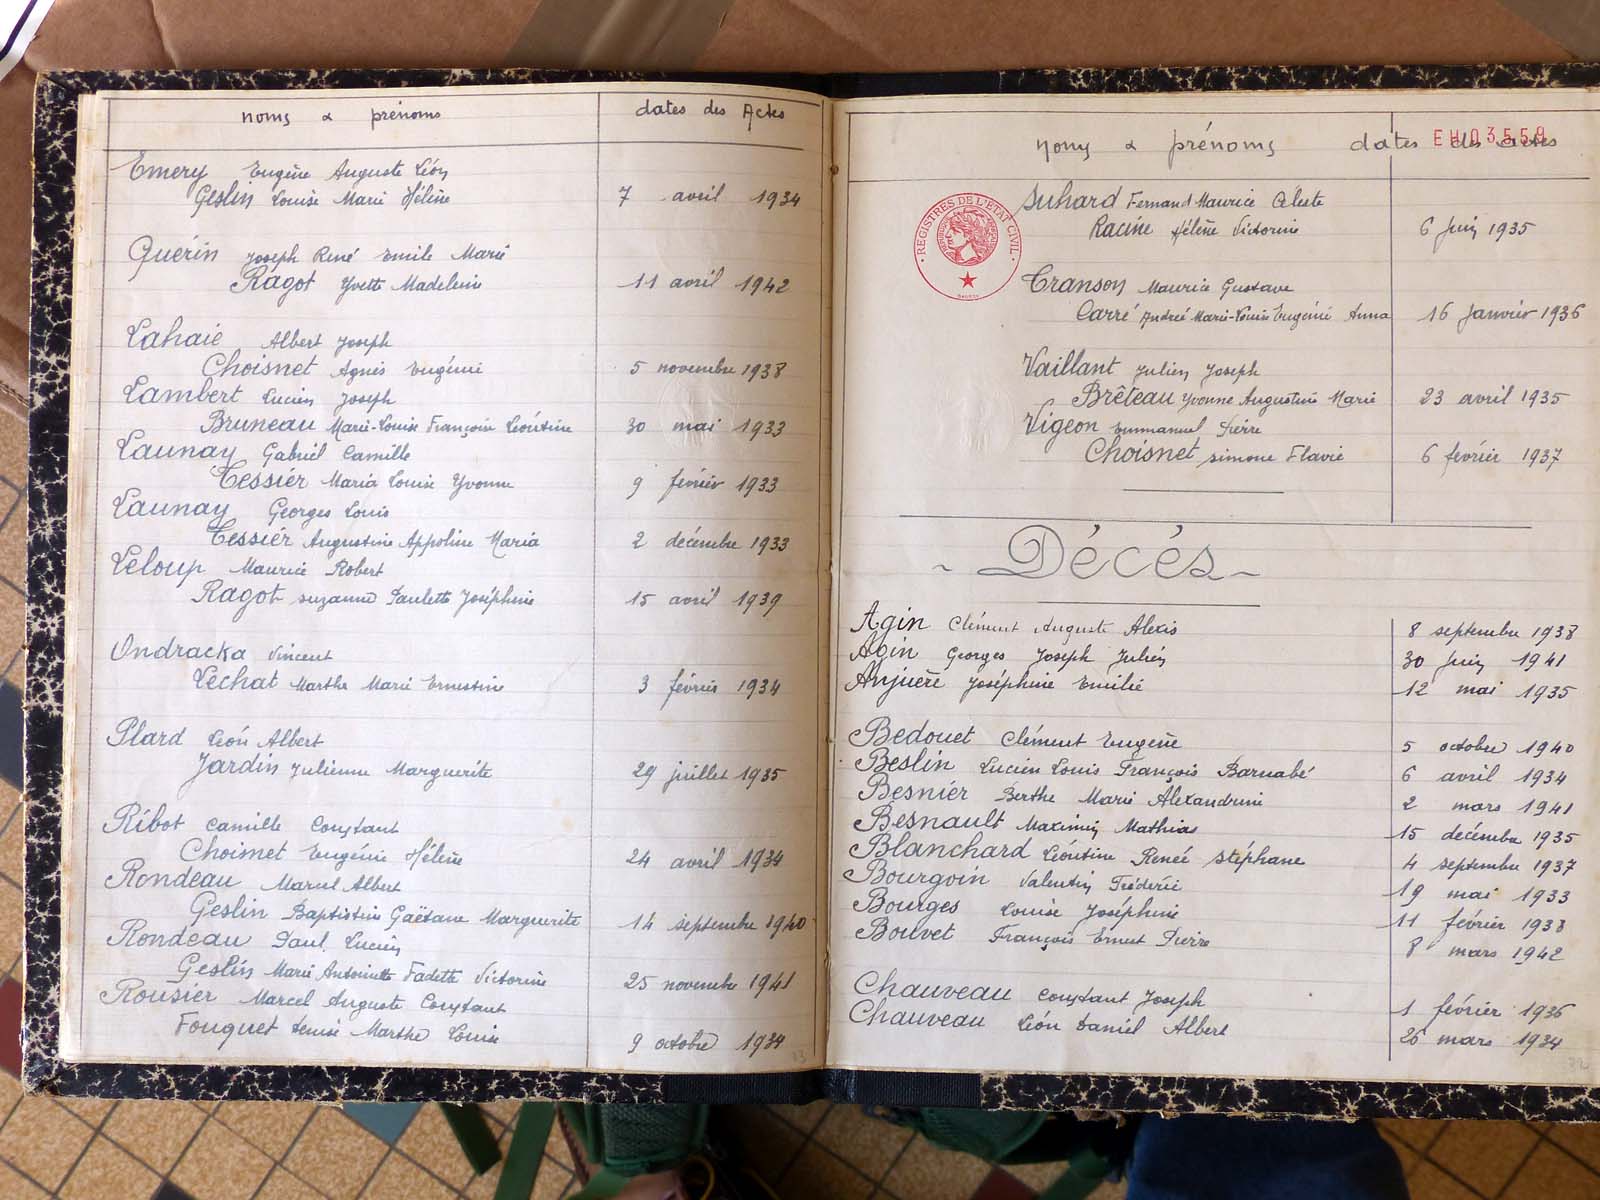 noms & prénoms dates des Actes
Emery Eugène Auguste Léon
Geslin Louise Marie Hélène 7 avril 1934
Guérin Joseph René Emile Marie
Ragot Yvette Madeleine 11 avril 1942
Lahaie Albert Joseph
Choisnet Agnès Eugénie 5 novembre 1938
Lambert Lucien Joseph
Bruneau Marie-Louise Françoise Léontine 30 mai 1933
Launay Gabriel Camille
Tessier Maria Louise Yvonne 9 février 1933
Launay Georges Louis
Tessier Augustine Appoline Maria 2 décembre 1933
Leloup Maurice Robert
Ragot Suzanne Paulette Joséphine 15 avril 1939
Ondracka Vincent
Lechat Marthe Marie Ernestine 3 février 1934
Plard Léon Albert
Jardin Julienne Marguerite 29 juillet 1935
Ribot Camille Constant
Choisnet Eugénie Hélène 24 avril 1934
Rondeau Marcel Albert
Geslin Baptistine Gaëtane Marguerite 14 septembre 1940
Rondeau Paul Lucien
Geslin Marie Antoinette Fadette Victorine 25 novembre 1941
Rousier Marcel Auguste Constant
Fouquet Denise Marthe Louise 9 octobre 1934
13
noms & prénoms dates des actes
EH03559
REGISTRES DE L'ETAT CIVIL
Suhard Fernand Maurice Céleste
Racine Hélène Victorine 6 Juin 1935
Transon Maurice Gustave
Carré Andrée Marie-Louise Eugénie Anna 16 Janvier 1936
Vaillant Julien Joseph
Brêteau Yvonne Augustine Marie 23 avril 1935
Vigeon Emmanuel Pierre
Choisnet Simone Flavie 6 février 1937
~ Décés ~
Agin Clément Auguste Alexis 8 septembre 1938
Agin Georges Joseph Julien 30 Juin 1941
Anjuère Joséphine Emilie 12 mai 1935
Bedouet Clément Eugène 5 octobre 1940
Beslin Lucien Louis François Barnabé 6 avril 1934
Besnier Berthe Marie Alexandrine 2 mars 1941
Besnault Maximin Mathias 15 décembre 1935
Blanchard Léontine Renée Stéphane 4 septembre 1937
Bourgoin Valentin Fréderic 19 mai 1933
Bourges Louise Joséphine 11 février 1938
Bouvet François Ernest Pierre 8 mars 1942
Chauveau Constant Joseph 1 février 1936
Chauveau Léon Daniel Albert 26 mars 1934